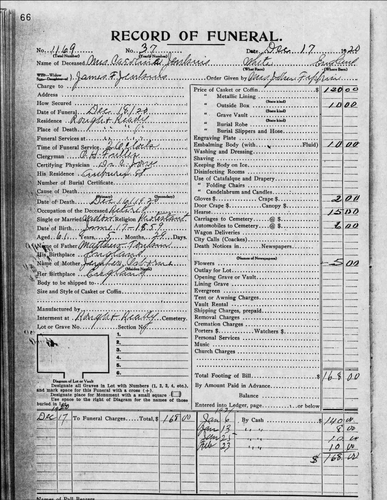 66
RECORD OF FUNERAL.
No. 1169 No. 37 Date Dec 17 1920
Name of Deceased Mrs Caroline Jenkins White England
(What Race) (Where Born)
James F Jenkins Order Given by Mrs John
Charge to
How Secured
Date of Funeral Dec 18/20
Residence Rough & Ready
Place of Death
Funeral Services at
Time of Funeral Service 2 o'clock
Clergyman
Certifying Physician Dr Jones
His Residence
Number of Burial Certificate
Cause of Death
Date of Death Dec 16 1920
Occupation of the Deceased
Single or Married Religion Protestant
Date of Birth June 17-1859
Aged 61 Years 5 Months Days.
Name of Father
His Birthplace England
Name of Mother
(Maiden Name)
Her Birthplace England
Body to be shipped to
Size and Style of Casket or Coffin
Manufactured by
Interment at Rough & Ready Cemetery.
Lot or Grave No. Section No.
1
2
3
4
5
6
Diagram of Lot or Vault
Designate all Graves in Lot with Numbers (1, 2, 3, 4, etc.), and mark space for this Funeral with a cross (+).
Designate place for Monument with a small square
Use space to the right of Diagram for the names of those buried in Lot.
Price of Casket or Coffin $ 120 00
" Metallic Lining
(State kind)
" Outside Box 10 00
(State kind)
" Grave Vault
(State kind)
" Burial Robe
(State kind)
" Burial Slippers and Hose
Engraving Plate
Embalming Body (with Fluid) 10 00
Washing and Dressing
Shaving
Keeping Body on Ice
Disinfecting Rooms
Use of Catafalque and Drapery
" Folding Chairs
" Candelabrum and Candles
Gloves $ 2 00
Door Crape $ Canopy $
Hearse 15 00
Carriages to Cemetery @ $
Automobiles to Cemetery @ $ 6 00
Wagon Deliveries
City Calls (Coaches)
Death Notices in Newspapers
(Names of Newspapers)
Flowers 5 00
Outlay for Lot
Opening Grave or Vault
Lining Grave
Evergreen
Tent or Awning Charges
Vault Rental
Shipping Charges, prepaid
Removal Charges
Cremation Charges
Porters $ Watchers $
Personal Services
Music
Church Charges
Total Footing of Bill $ 168 00
By Amount Paid in Advance
Balance $
Entered into Ledger, page or below.
1920
Dec 17 To Funeral Charges, Total $ 168 00
1921
Jan 6 By Cash $ 140 00
Jan 13 " " 8 00
Jan 25 " " 10 00
Feb 23 " " 10 00
$ 168 00